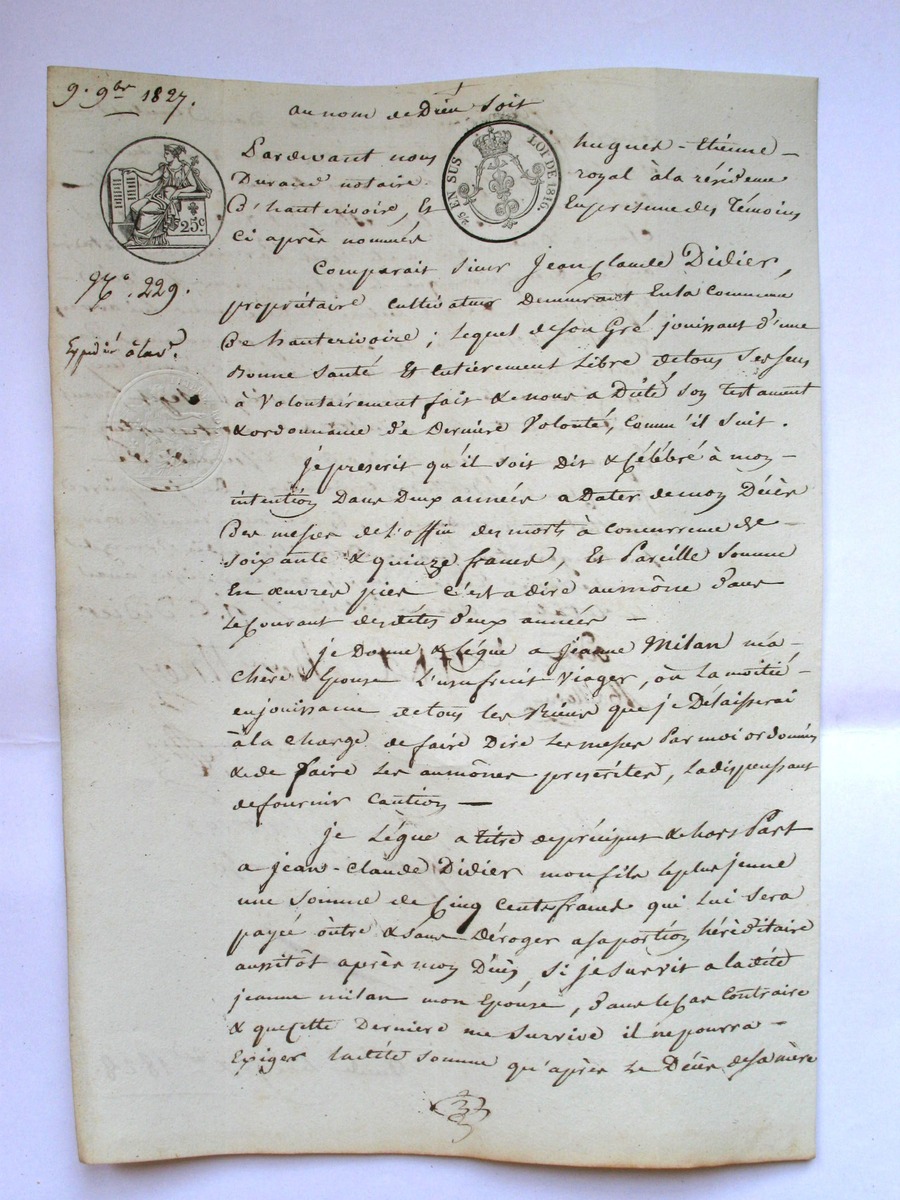 9. 9bre 1827.
au nom de Dieu soit
Pardevant nous hugues-étienne-
Durand notaire royal à la résidence
D'hauterivoire, Et En présence des Témoins
Ci après nommés
25c
25 EN SUS LOI DE 1816.
No. 229.
Expédié
Comparait sieur Jean Claude Didier,
propriétaire cultivateur Demeurant En la Commune
De hauterivoire; lequel de son Gré jouissant d'une
Bonne santé Et Entièrement Libre de tous ses sens
à Volontairement fait & nous a Dicté son testament
& ordonnance de Dernière Volonté, comm'il suit.
je prescrit qu'il soit dit & Célébré à mon
intention Dans Deux années a Dater de mon Décès
Des messes de l'office des morts à concurrence de
soixante & quinze francs, Et Pareille somme
En œuvres pies c'est a dire aumône dans
Le Courant des dites deux années -
je Donne & Lègue a jeanne Milan ma
chère Epouse L'usufruit Viager, ou La moitié
en jouissance de tous les Biens que je Délaisserai
à la charge de faire Dire Les messes Par moi ordonnées
& de faire Les aumônes prescrites, la dispensant
de fournir Caution —
je Lègue a titre de préciput & hors Part
a jean-Claude Didier mon fils le plus jeune
une somme de Cinq Cents francs qui Lui sera
payée outre & sans Déroger a sa portion héréditaire
aussitôt après mon Décès, si je survit a la dite
jeanne milan mon Epouse, dans le Cas Contraire
& que cette Dernière me survive il ne pourra -
Exiger la dite somme qu'après Le Décès de sa mère